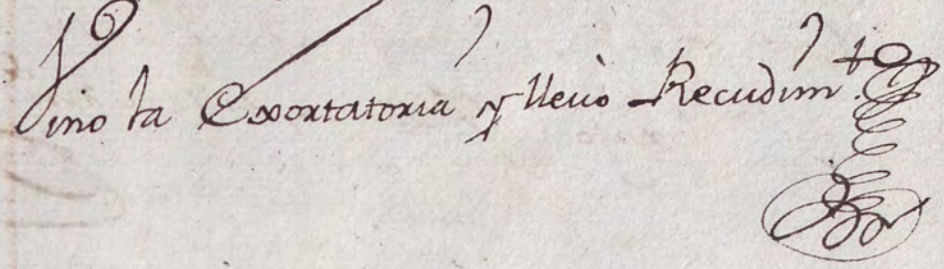 Vino la Exortatoria y lleuò Recudim.to